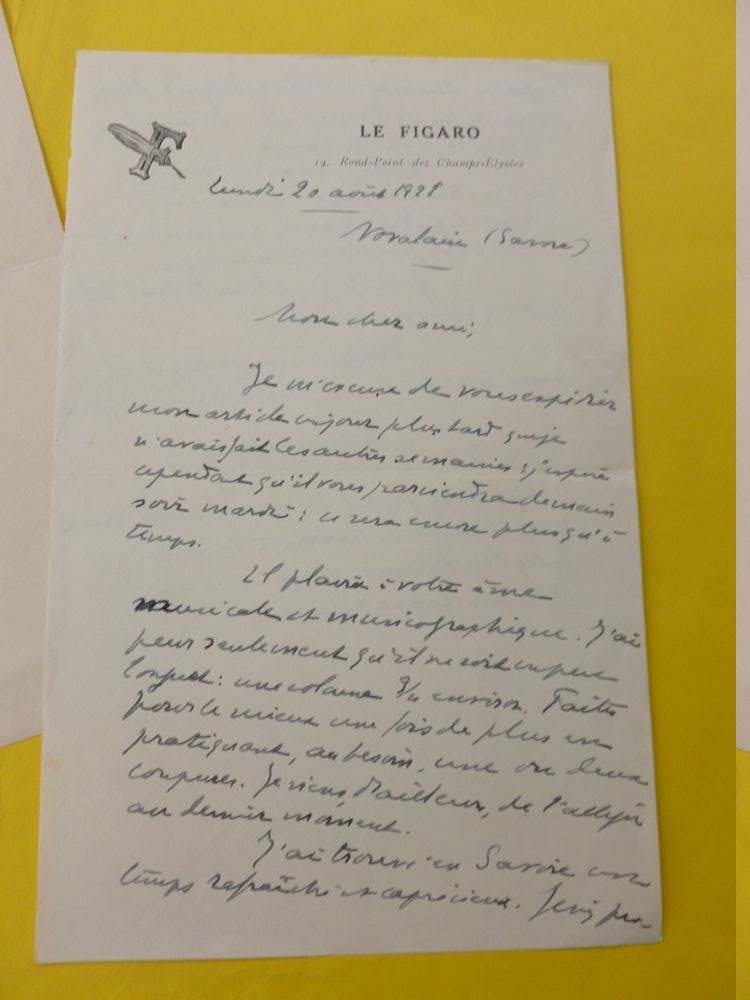 F
LE FIGARO
14, Rond-Point des Champs-Élysées
Lundi 20 août 1928
Novalaise (Savoie)
Mon cher ami,
Je m'excuse de vous expédier
mon article un jour plus tard que je
n'avais fait les autres semaines : j'espère
cependant qu'il vous parviendra demain
soir mardi : ce sera encore plus qu'à
temps.
Il plaira à votre âme
musicale et musicographique. J'ai
peur seulement qu'il ne soit un peu
longuet : une colonne 3/4 environ. Faites
pour le mieux une fois de plus en
pratiquant, au besoin, une ou deux
coupures. Je viens, d'ailleurs, de l'alléger
au dernier moment.
J'ai trouvé en Savoie un
temps rafraîchi et capricieux.